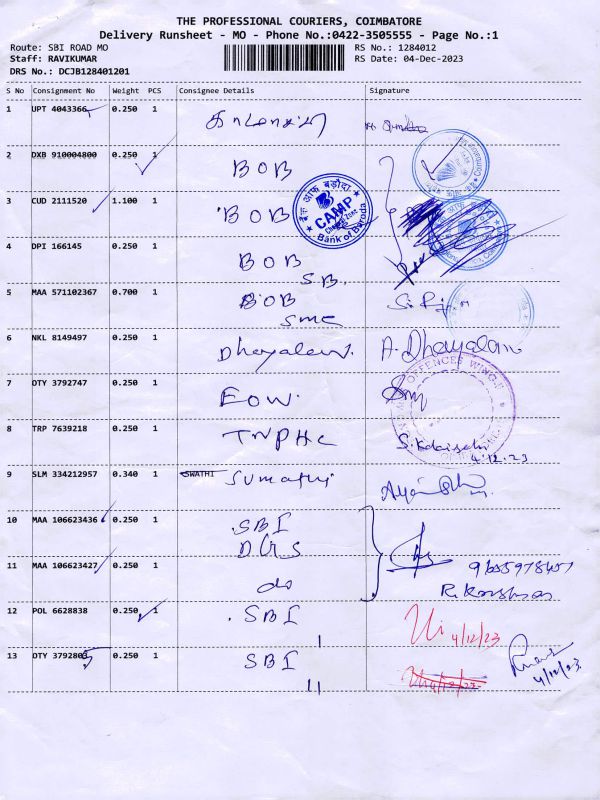 THE PROFESSIONAL COURIERS, COIMBATORE
Delivery Runsheet - MO - Phone No.:0422-3505555 - Page No.:1
Route: SBI ROAD MO RS No.: 1284012
Staff: RAVIKUMAR RS Date: 04-Dec-2023
DRS No.: DCJB128401201
S No Consignment No Weight PCS Consignee Details Signature
1 UPT 4043366 0.250 1
2 DXB 910004800 0.250 1 BOB
3 CUD 2111520 1.100 1 BOB
बैंक ऑफ़ बड़ौदा CAMP Bank of Baroda
4 DPI 166145 0.250 1 BOB
SB.
5 MAA 571102367 0.700 1 BOB
SME
6 NKL 8149497 0.250 1 Dhayalan. A. Dhayalan
OFFENCES WING-II
7 OTY 3792747 0.250 1 EOW.
8 TRP 7639218 0.250 1 TNPHC
4.12.23
9 SLM 334212957 0.340 1 SWATHI Sumathi
10 MAA 106623436 0.250 1 SBI
11 MAA 106623427 0.250 1 do
12 POL 6628838 0.250 1 SBI 4/12/23
I
13 OTY 3792803 0.250 1 SBI 4/12/23
II